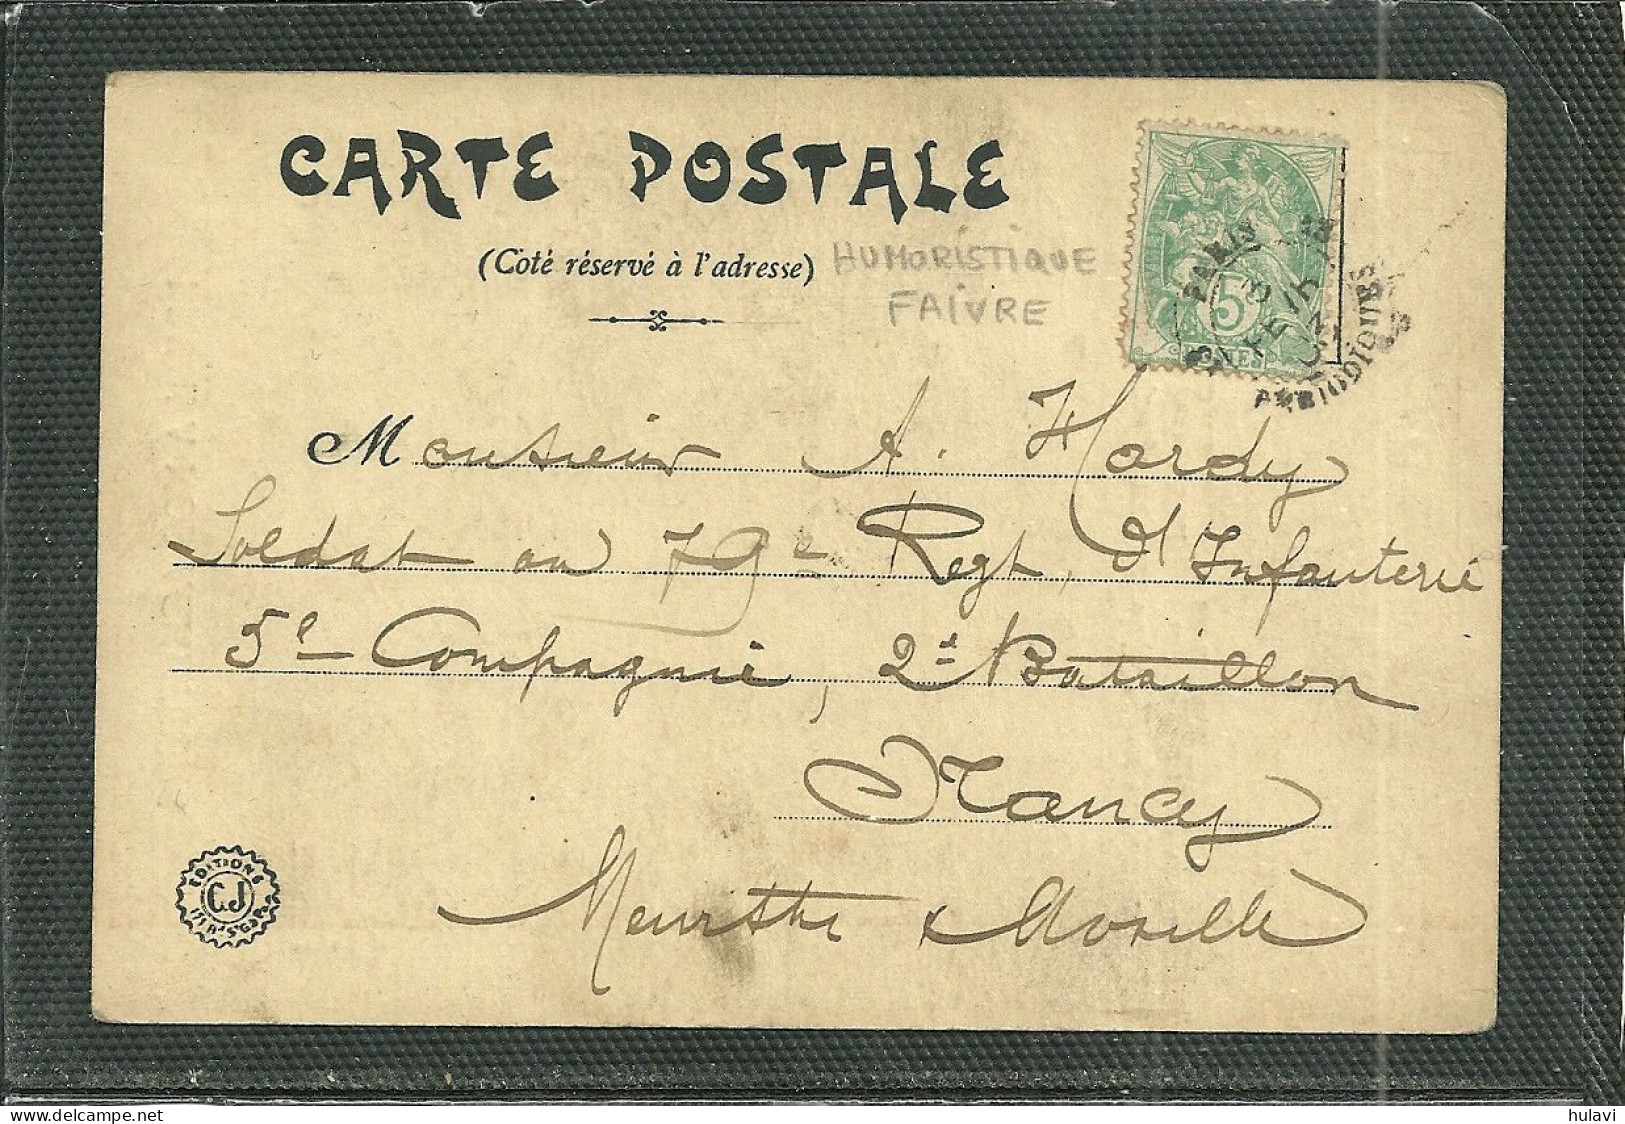 CARTE POSTALE
(Côté réservé à l'adresse)
HUMORISTIQUE
FAIVRE
PARIS
5
POSTES
Monsieur A. Hardy
Soldat au 79e Regt d'Infanterie
5e Compagnie, 2d Bataillon
Nancy
Meurthe & Moselle
EDITIONS
C.J
PARIS
delcampe.net
hulavi